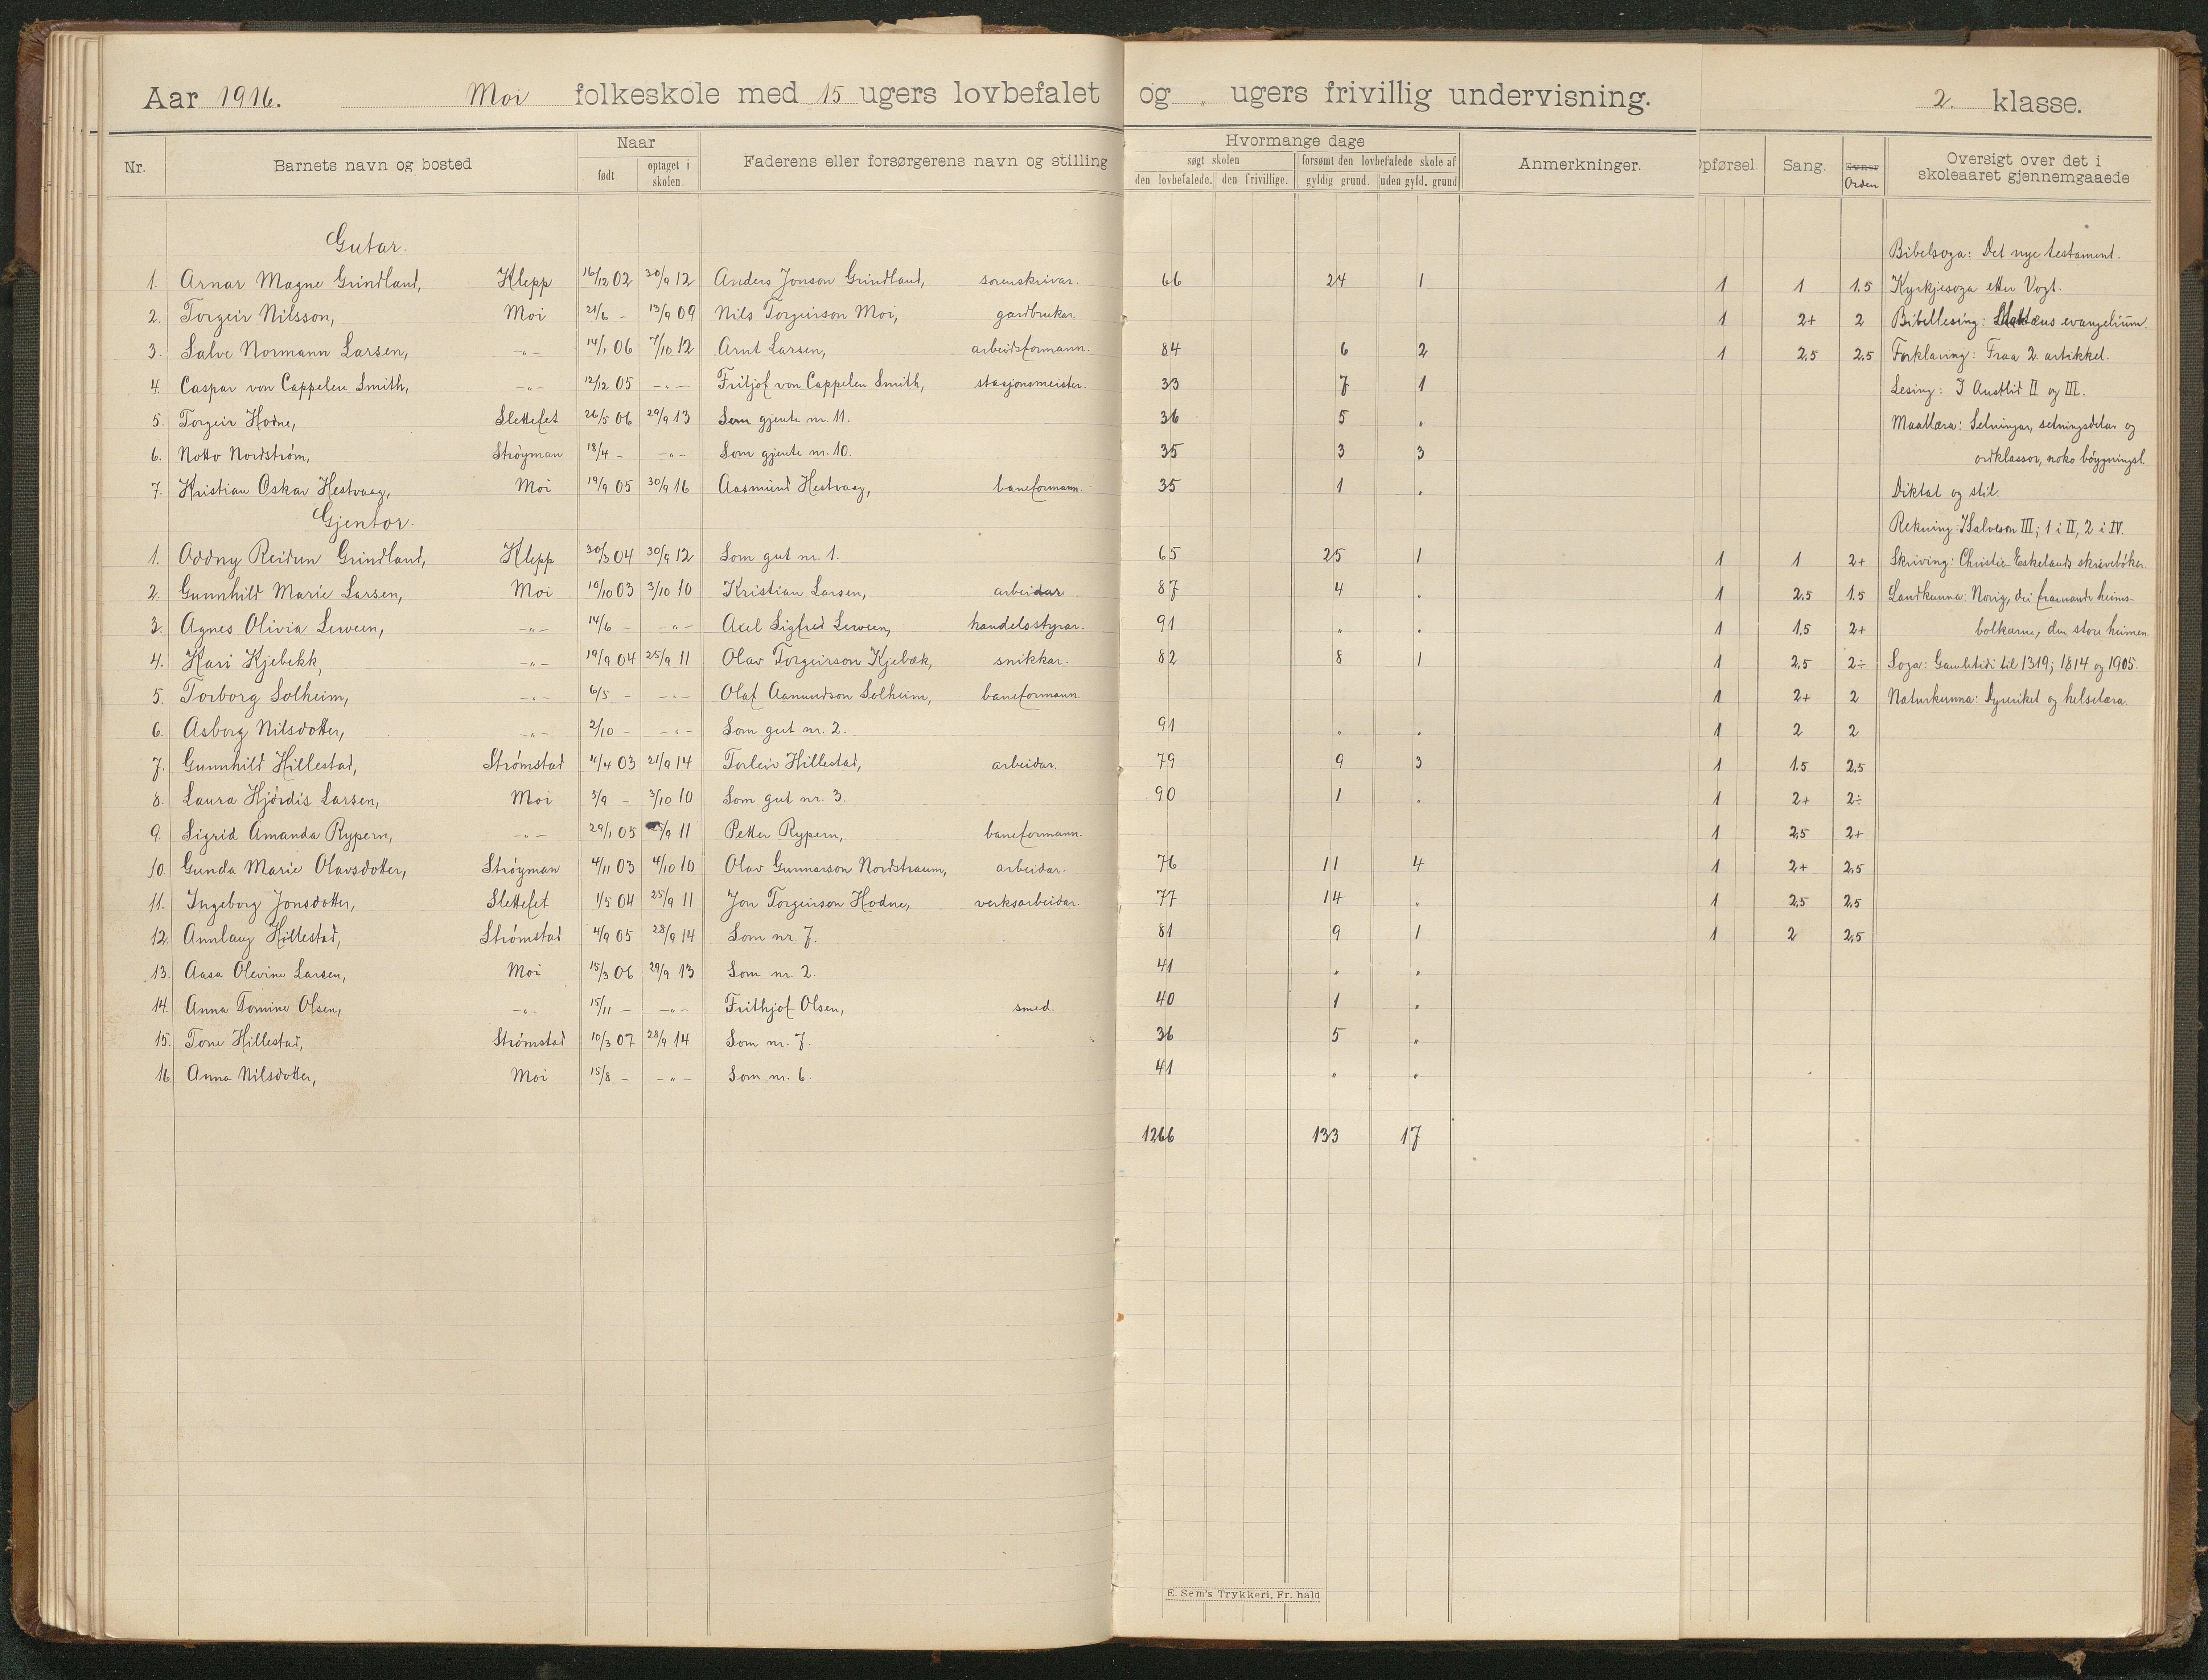 Aar 1916. Moi folkeskole med 15 ugers lovbefalet og „ ugers frivillig undervisning. 2. klasse.
Nr. Barnets navn og bosted Naar født optaget i skolen. Faderens eller forsørgerens navn og stilling Hvormange dage søgt skolen den lovbefalede. den frivillige. forsømt den lovbefalede skole af gyldig grund. uden gyld. grund Anmerkninger. Opførsel Sang. Evner Orden Oversigt over det i skoleaaret gjennemgaaede
Gutar. Bibelsoga: Det nye testament.
1. Arnar Magne Grindland, Klepp 16/12 02 30/9 12 Anders Jonson Grindland, sorenskrivar. 66 24 1 1 1 1.5 Kyrkjesoga etter Vogt.
2. Torgeir Nilsson, Moi 21/6 - 13/9 09 Nils Torgeirson Moi, gardbrukar. 1 2+ 2 Bibellesing: Mattæus evangelium.
3. Salve Normann Larsen, -„- 14/1 06 7/10 12 Arnt Larsen, arbeidsformann. 84 6 2 1 2,5 2,5 Forklaring: Fraa 2. artikkel.
4. Caspar von Cappelen Smith, -„- 12/12 05 -„- Fritjof von Cappelen Smith, stasjonsmeister. 33 7 1 Lesing: I Austlid II og III.
5. Torgeir Hodne, Slettefet 26/5 06 29/9 13 Som gjente nr. 11. 36 5 „ Maallæra: Setningar, setningsdelar og
6. Notto Nordstrøm, Strøyman 18/4 - -„- Som gjente nr. 10. 35 3 3 ordklassor, noko bøygningsl.
7. Kristian Oskar Hestvaag, Moi 19/9 05 30/9 16 Aasmund Hestvaag, baneformann. 35 1 „ Diktat og stil.
Gjentor. Rekning: J Salveson III; 1 i II, 2 i IV.
1. Oddny Reidun Grindland, Klepp 30/3 04 30/9 12 Som gut nr. 1. 65 25 1 1 1 2+ Skriving: Christie-Eskelands skrivebøker.
2. Gunnhild Marie Larsen, Moi 10/10 03 3/10 10 Kristian Larsen, arbeidar 87 4 „ 1 2,5 1.5 Landkunna: Norig, dei framande heims-
3. Agnes Olivia Lerveen, -„- 14/6 - -„- Axel Sigfred Lerveen, handelsstyrar. 91 „ „ 1 1,5 2+ bolkarne, den store heimen.
4. Kari Kjebekk, -„- 19/9 04 25/9 11 Olav Torgeirson Kjebæk, snikkar. 82 8 1 1 2,5 2÷ Soga: Gamletidi til 1319; 1814 og 1905.
5. Torborg Solheim, -„- 6/5 - -„- Olaf Aanundson Solheim, baneformann. 1 2+ 2 Naturkunna: Dyreriket og helselæra.
6. Asborg Nilsdotter, -„- 2/10 - -„- Som gut nr. 2. 91 „ „ 1 2 2
7. Gunnhild Hillestad, Strømstad 4/4 03 21/9 14 Torleiv Hillestad, arbeidar. 79 9 3 1 1.5 2,5
8. Laura Hjørdis Larsen, Moi 5/9 - 3/10 10 Som gut nr. 3. 90 1 „ 1 2+ 2÷
9. Sigrid Amanda Rypern, -„- 29/1 05 25/9 11 Petter Rypern, baneformann. 1 2,5 2+
10. Gunda Marie Olavsdotter, Strøyman 4/11 03 4/10 10 Olav Gunnarson Nordstraum, arbeidar. 76 11 4 1 2+ 2,5
11. Ingeborg Jonsdotter, Slettefet 1/5 04 25/9 11 Jon Torgeirson Hodne, verksarbeidar. 77 14 „ 1 2,5 2,5
12. Annlaug Hillestad, Strømstad 4/9 05 28/9 14 Som nr. 7. 81 9 1 1 2 2,5
13. Aasa Olevine Larsen, Moi 15/3 06 29/9 13 Som nr. 2. 41 „ „
14. Anna Tomine Olsen, -„- 15/11 - -„- Frithjof Olsen, smed. 40 1 „
15. Tone Hillestad, Strømstad 10/3 07 28/9 14 Som nr. 7. 36 5 „
16. Anna Nilsdotter, Moi 15/8 - -„- Som nr. 6. 41 „ „
1266 133 17
E. Sem's Trykkeri, Fr. hald